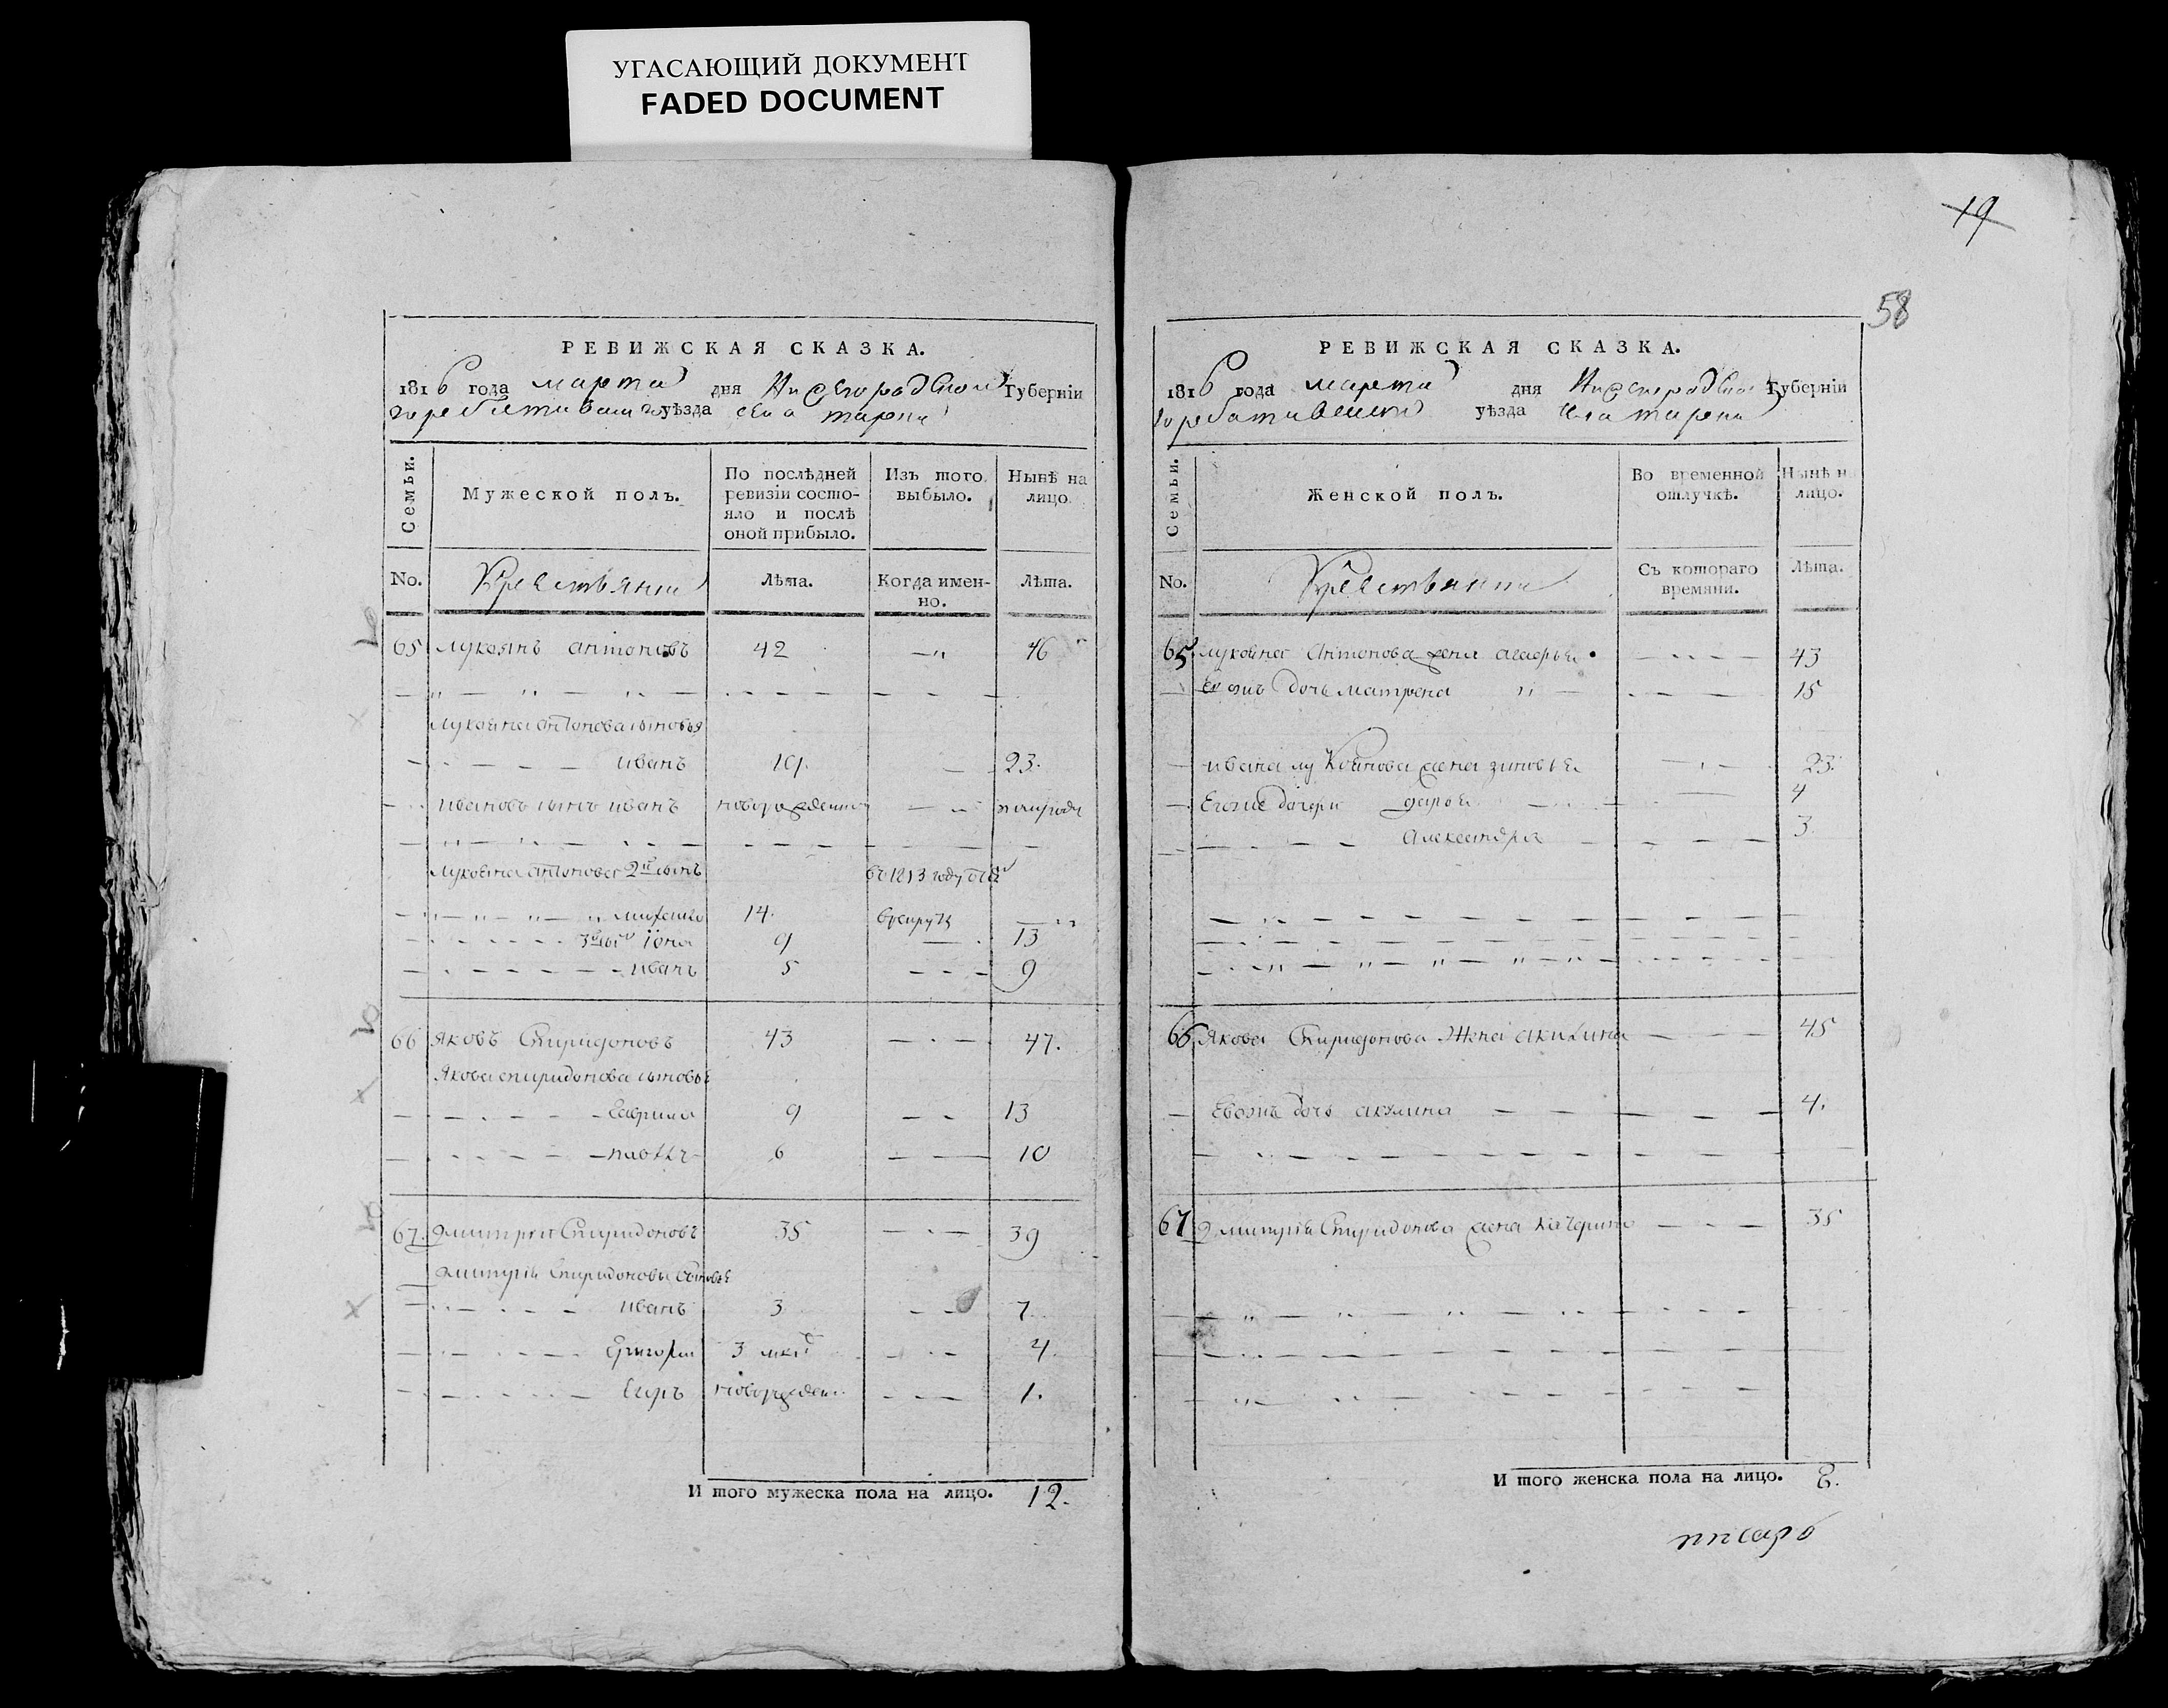 УГАСАЮЩИЙ ДОКУМЕНТ
FADED DOCUMENT
РЕВИЖСКАЯ СКАЗКА.
1816 года марта дня Нижегородской Губерніи
горбатовского уѣзда села
Семьи.
Мужеской полъ.
По послѣдней ревизіи состо-
яло и послѣ
оной прибыло.
Изъ того выбыло.
Нынѣ на лицо.
No. Крестьяни Лѣта. Когда имен-
но. Лѣта.
65 Лукоянъ антоновъ 42 46
Лукояна антонова сыновья
иванъ 19. 23.
ивановъ сынъ иванъ новорожденной
Лукояна антонова 2й сынъ въ 1813 году
14.
3й іона 9 13
иванъ 5 9
66 Яковъ Спиридоновъ 43 47.
Якова спиридонова сыновья
Гаврила 9 13
6 10
67. Дмитрей Спиридоновъ 35 39
Дмитрія Спиридонова сыновья
иванъ 3 7
Григорей 3 4.
Егоръ новорожден 1.
И того мужеска пола на лицо. 12.
19
58
РЕВИЖСКАЯ СКАЗКА.
1816 года марта дня Нижегородской Губерніи
Горбатовского уѣзда села
Семьи.
Женской полъ.
Во временной отлучкѣ.
Нынѣ на лицо.
No. Крестьяни Съ котораго
времяни. Лѣта.
65 Лукояна Антонова жена 43
дочь Матрена 15
ивана лукоянова жена зиновья 23.
Егоже дочери дарья 4
Александра 3
66 Якова Спиридонова Жена акилина 45
Евожъ дочь акулина 4.
67 Дмитрія Спиридонова жена катерина 35
И того женска пола на лицо. 8.
писарь